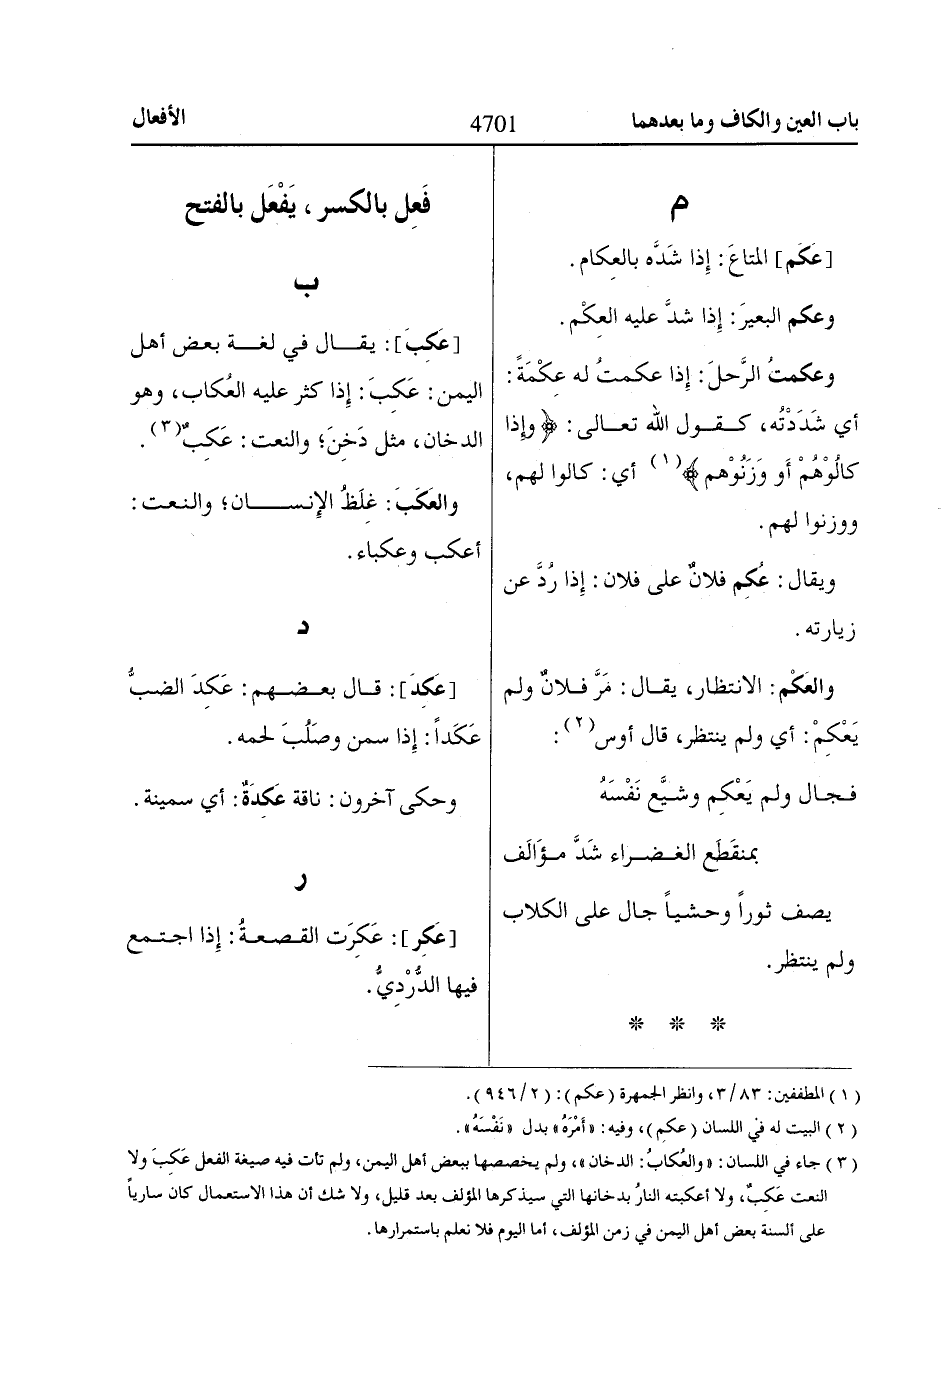 باب العين والكاف وما بعدهما
4701
الأفعال
م
[عَكَم] المتاعَ: إِذا شَدَّه بالعِكام.
وعكم البعيرَ: إِذا شدَّ عليه العكْم.
وعكمتُ الرَّحلَ: إِذا عكمتُ له عِكْمَةً:
أي شَدَدْتُه، كقول الله تعالى: ﴿وإِذا
كالُوْهُمْ أو وَزَنُوْهم﴾(١) أي: كالوا لهم،
ووزنوا لهم.
ويقال: عُكم فلانٌ على فلان: إِذا رُدَّ عن
زيارته.
والعَكْم: الانتظار، يقال: مَرَّ فلانٌ ولم
يَعْكِمْ: أي ولم ينتظر، قال أوس(٢):
فجال ولم يَعْكِم وشيَّع نَفْسَهُ
بمنقَطَع الغضراء شَدَّ مؤَالَف
يصف ثوراً وحشياً جال على الكلاب
ولم ينتظر.
* * *
فَعِل بالكسر، يَفْعَل بالفتح
ب
[عَكِبَ]: يقال في لغة بعض أهل
اليمن: عَكِبَ: إِذا كثر عليه العُكاب، وهو
الدخان، مثل دَخِنَ؛ والنعت: عَكِبٌ(٣).
والعَكَبَ: غِلَظُ الإِنسان؛ والنعت:
أعكب وعكباء.
د
[عَكِدَ]: قال بعضهم: عَكِدَ الضبُّ
عَكَداً: إِذا سمن وصَلُبَ لحمه.
وحكى آخرون: ناقة عَكِدَةٌ: أي سمينة.
ر
[عَكِر]: عَكِرَت القصعةُ: إِذا اجتمع
فيها الدُّرْدِيُّ.
(١) المطففين: ٣/٨٣، وانظر الجمهرة (عكم): (٩٤٦/٢).
(٢) البيت له في اللسان (عكم)، وفيه: «أمْرَهُ» بدل «نَفْسَهُ».
(٣) جاء في اللسان: «والعُكابُ: الدخان»، ولم يخصصها ببعض أهل اليمن، ولم تأت فيه صيغة الفعل عَكِبَ ولا
النعت عَكِبٌ، ولا أعكبته النارُ بدخانها التي سيذكرها المؤلف بعد قليل، ولا شك أن هذا الاستعمال كان سارياً
على ألسنة بعض أهل اليمن في زمن المؤلف، أما اليوم فلا نعلم باستمرارها.